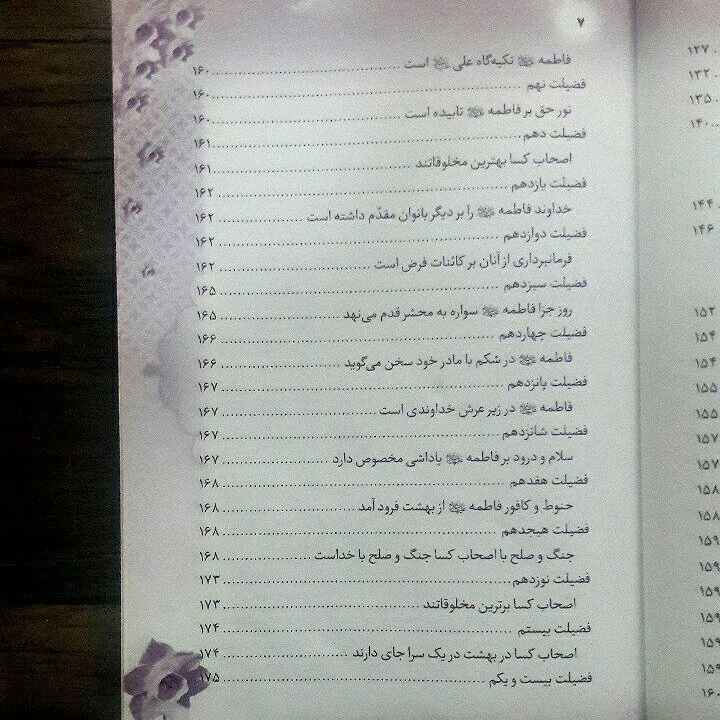 ۷
فاطمه ﷍ تکیه‌گاه علی ﷷ است ........ ۱۶۰
فضیلت نهم ........ ۱۶۰
نور حق بر فاطمه تابیده است ........ ۱۶۰
فضیلت دهم ........ ۱۶۱
اصحاب کسا بهترین مخلوقاتند ........ ۱۶۱
فضیلت یازدهم ........ ۱۶۲
خداوند فاطمه را بر دیگر بانوان مقدّم داشته است ........ ۱۶۲
فضیلت دوازدهم ........ ۱۶۲
فرمانبرداری از آنان بر کائنات فرض است ........ ۱۶۲
فضیلت سیزدهم ........ ۱۶۵
روز جزا فاطمه سواره به محشر قدم می‌نهد ........ ۱۶۵
فضیلت چهاردهم ........ ۱۶۶
فاطمه در شکم با مادر خود سخن می‌گوید ........ ۱۶۶
فضیلت پانزدهم ........ ۱۶۷
فاطمه در زیر عرش خداوندی است ........ ۱۶۷
فضیلت شانزدهم ........ ۱۶۷
سلام و درود بر فاطمه پاداشی مخصوص دارد ........ ۱۶۷
فضیلت هفدهم ........ ۱۶۸
حنوط و کافور فاطمه از بهشت فرود آمد ........ ۱۶۸
فضیلت هیجدهم ........ ۱۶۸
جنگ و صلح با اصحاب کسا جنگ و صلح با خداست ........ ۱۶۸
فضیلت نوزدهم ........ ۱۷۳
اصحاب کسا برترین مخلوقاتند ........ ۱۷۳
فضیلت بیستم ........ ۱۷۴
اصحاب کسا در بهشت در یک سرا جای دارند ........ ۱۷۴
فضیلت بیست و یکم ........ ۱۷۵
۱۲۷
۱۳۲
۱۳۵
۱۴۰
۱۴۴
۱۴۶
۱۵۳
۱۵۴
۱۵۴
۱۵۵
۱۵۵
۱۵۷
۱۵۷
۱۵۸
۱۵۸
۱۵۹
۱۵۹
۱۵۹
۱۵۹
۱۵۹
۱۵۹
۱۶۰